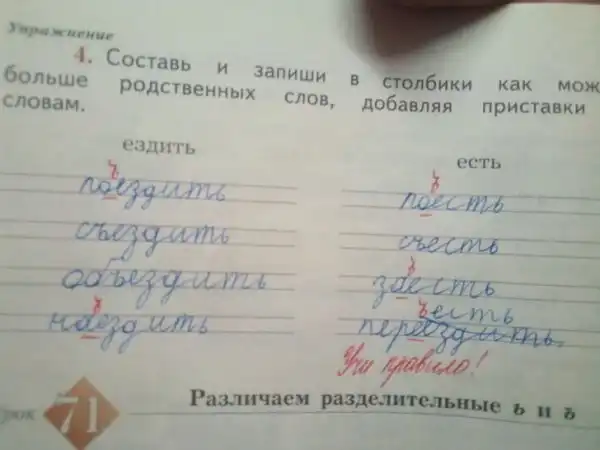 Упражнение
4. Составь и запиши в столбики как мож
больше родственных слов, добавляя приставки
словам.
ездить
есть
ъ
поездить
ъ
поесть
съездить
съесть
объездить
ъ
заесть
ъ
наездить
ъесть
переездить.
Учи правило!
рок 71
Различаем разделительные ь и ъ